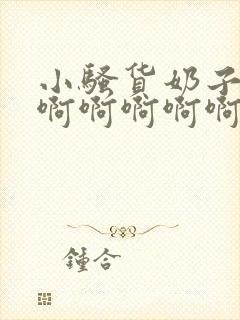 小骚货奶子
啊啊啊啊啊
鍾合